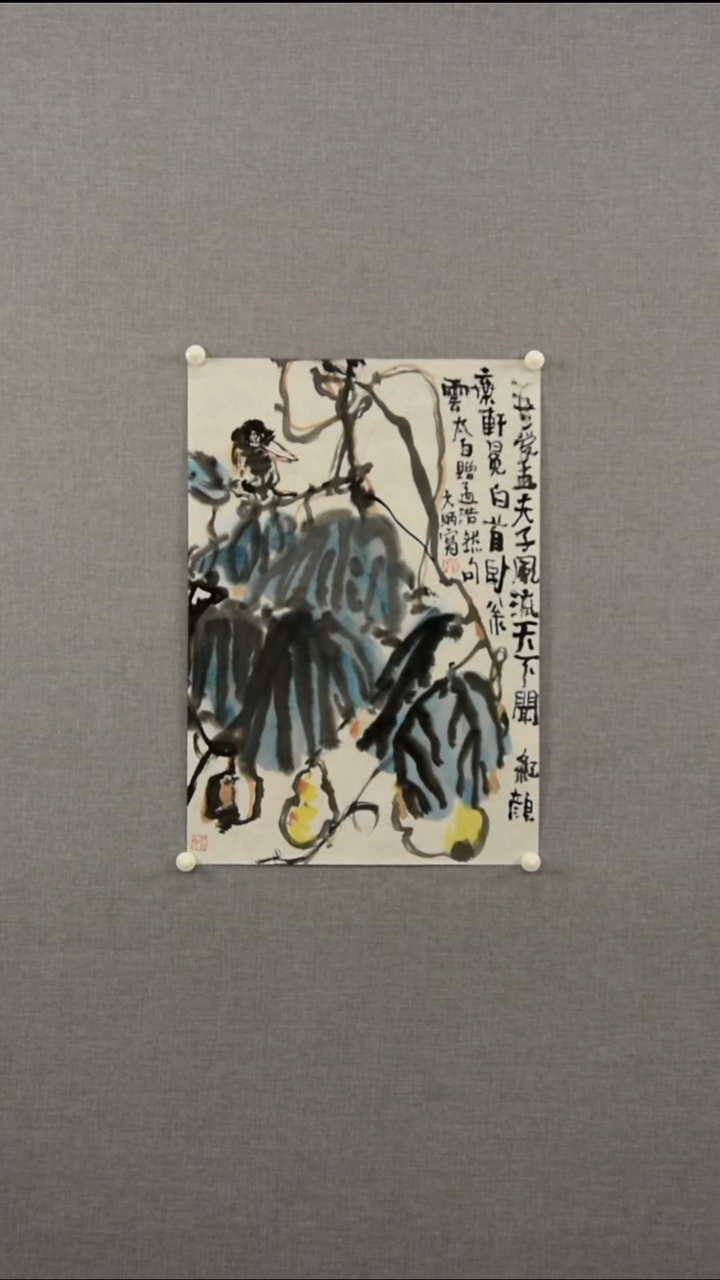 吾愛孟夫子風流天下聞 紅顏
棄軒冕白首卧松
雲 太白贈孟浩然句
大炳寫